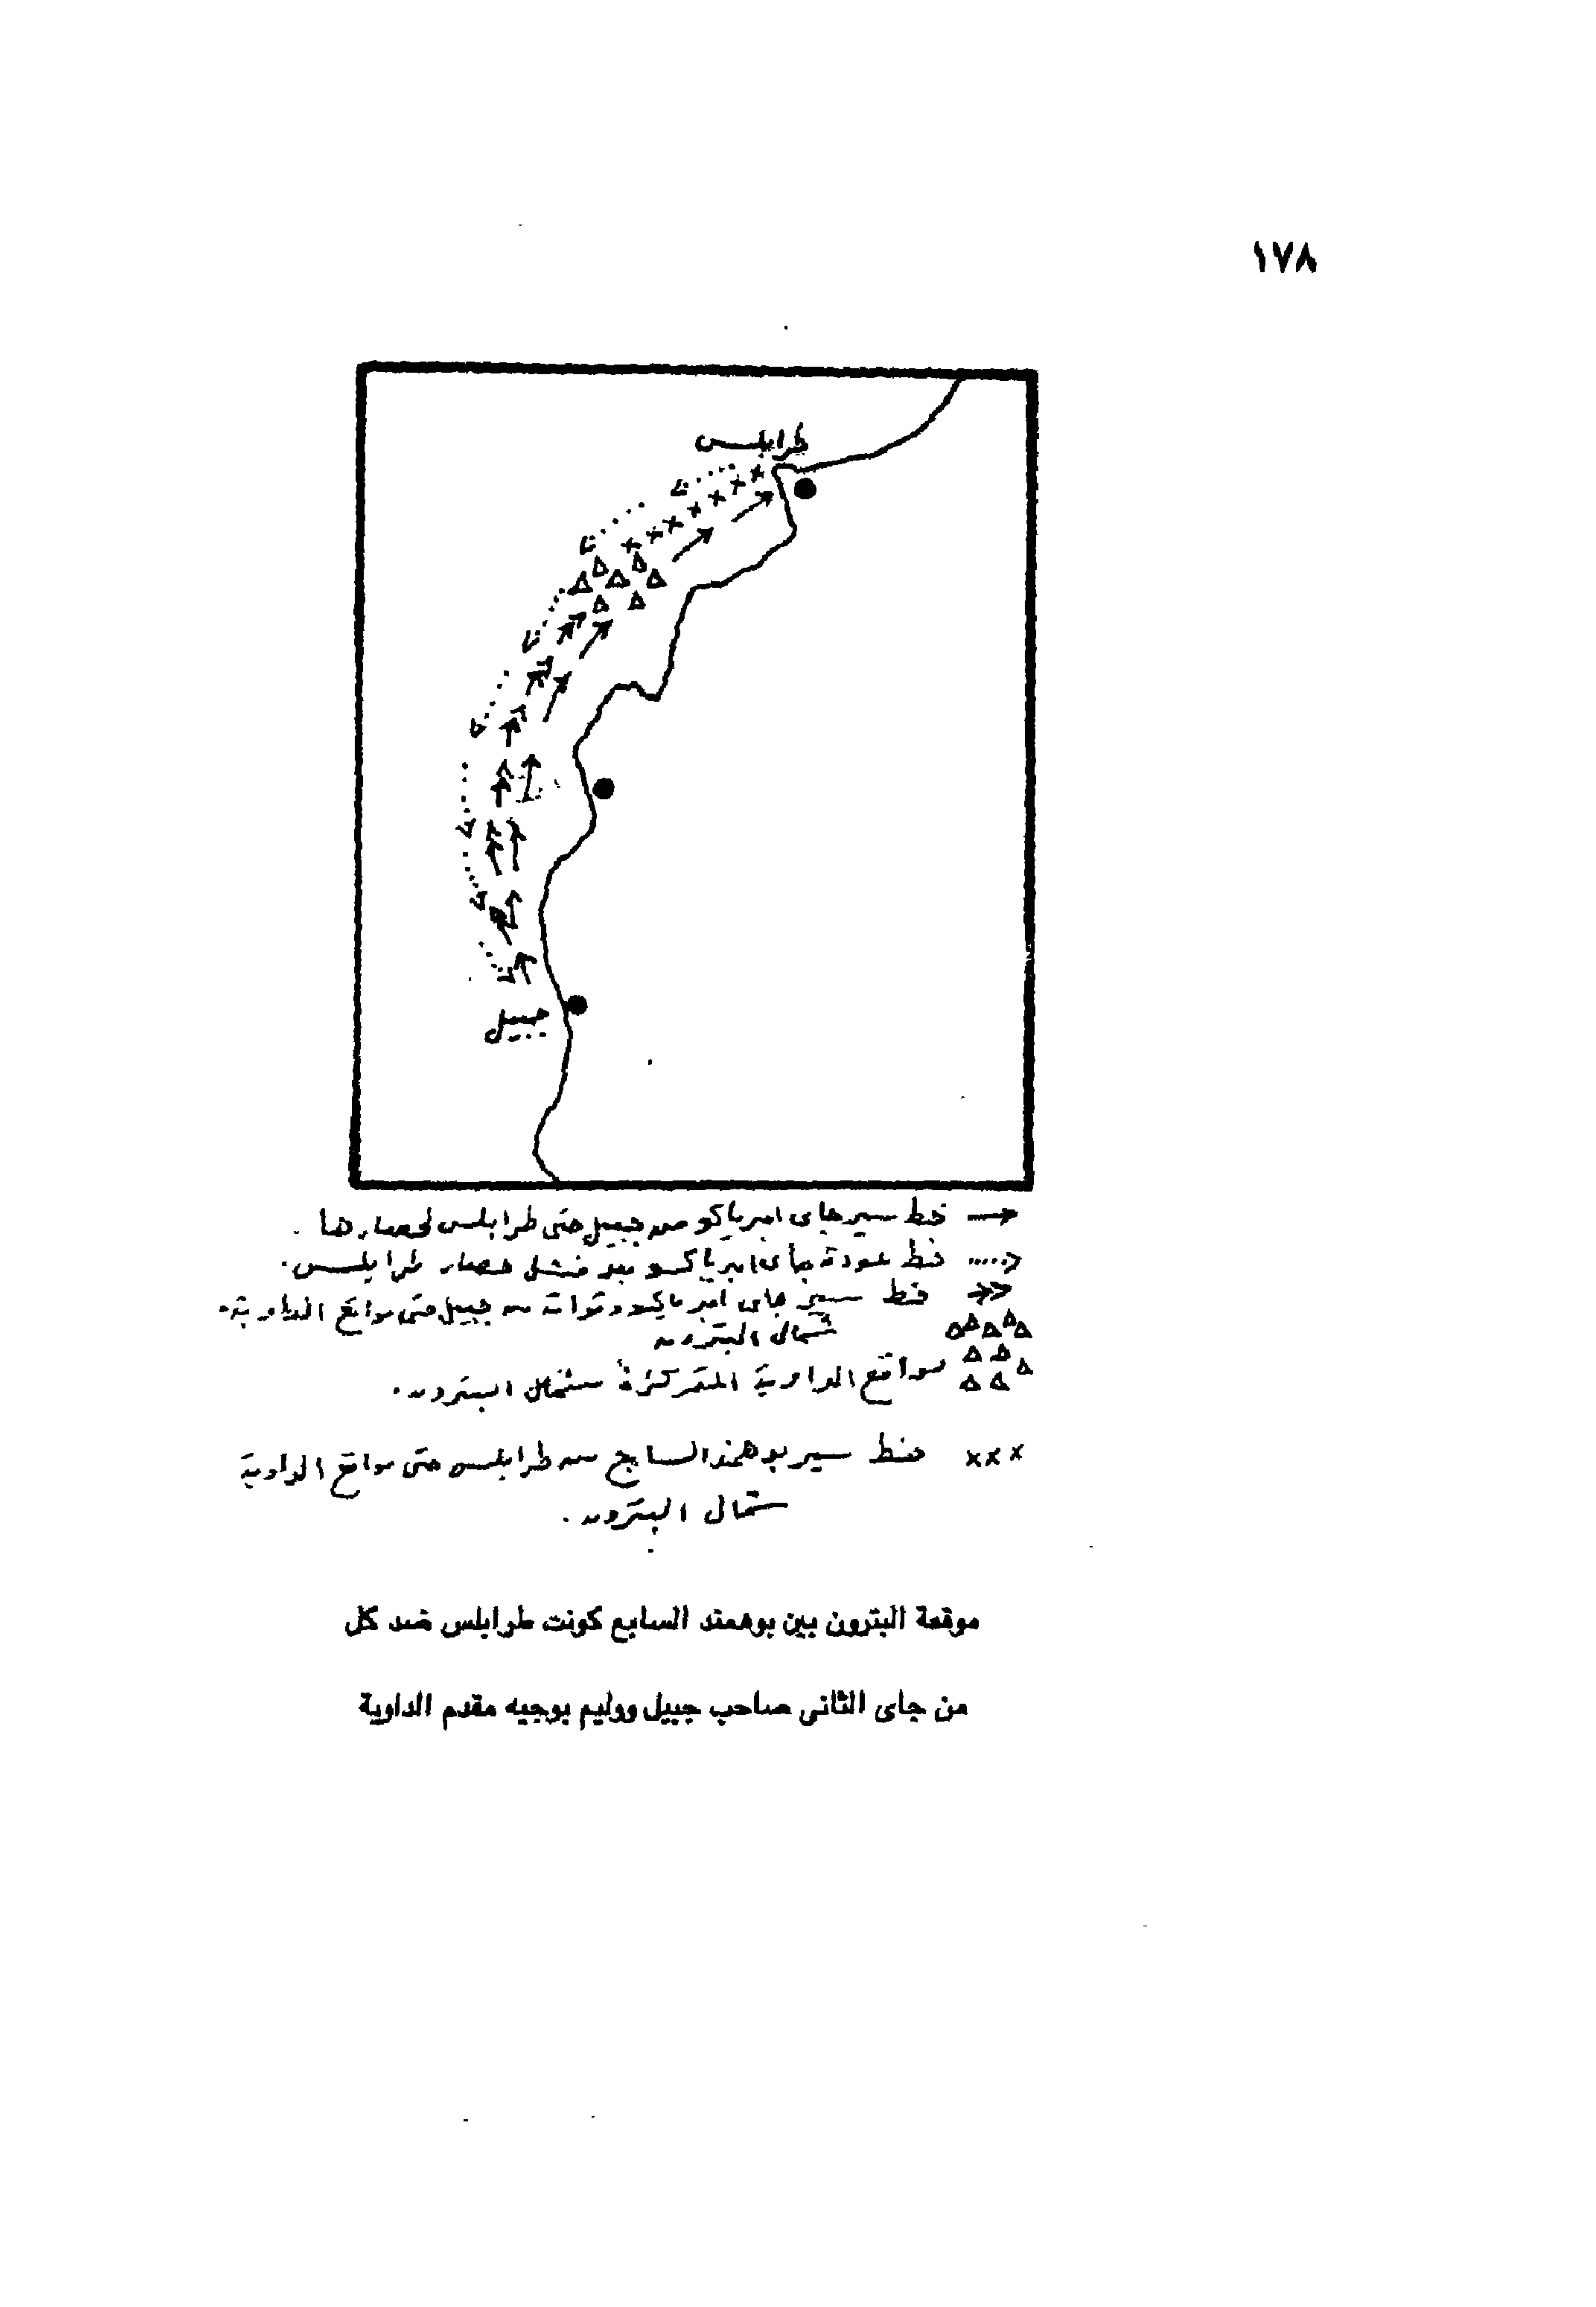 ١٧٨
طرابلس
جبيل
خط سير جاى امبرياكو من جبيل حتى طرابلس لحصارها .
خط عودة جاى امبرياكو بعد فشل حصار طرابلس .
خط سير جاى امبرياكو وقواته من جبيل حتى مواقع الداوية .
شمال البترون
مواقع الداوية المتمركزة شمال البترون .
خط سير بوهمند السابع من طرابلس حتى مواقع الداوية
شمال البترون .
موقعة البترون بين بوهمند السابع كونت طرابلس ضد كل
من جاى الثانى صاحب جبيل ووليم بوجيه مقدم الداوية